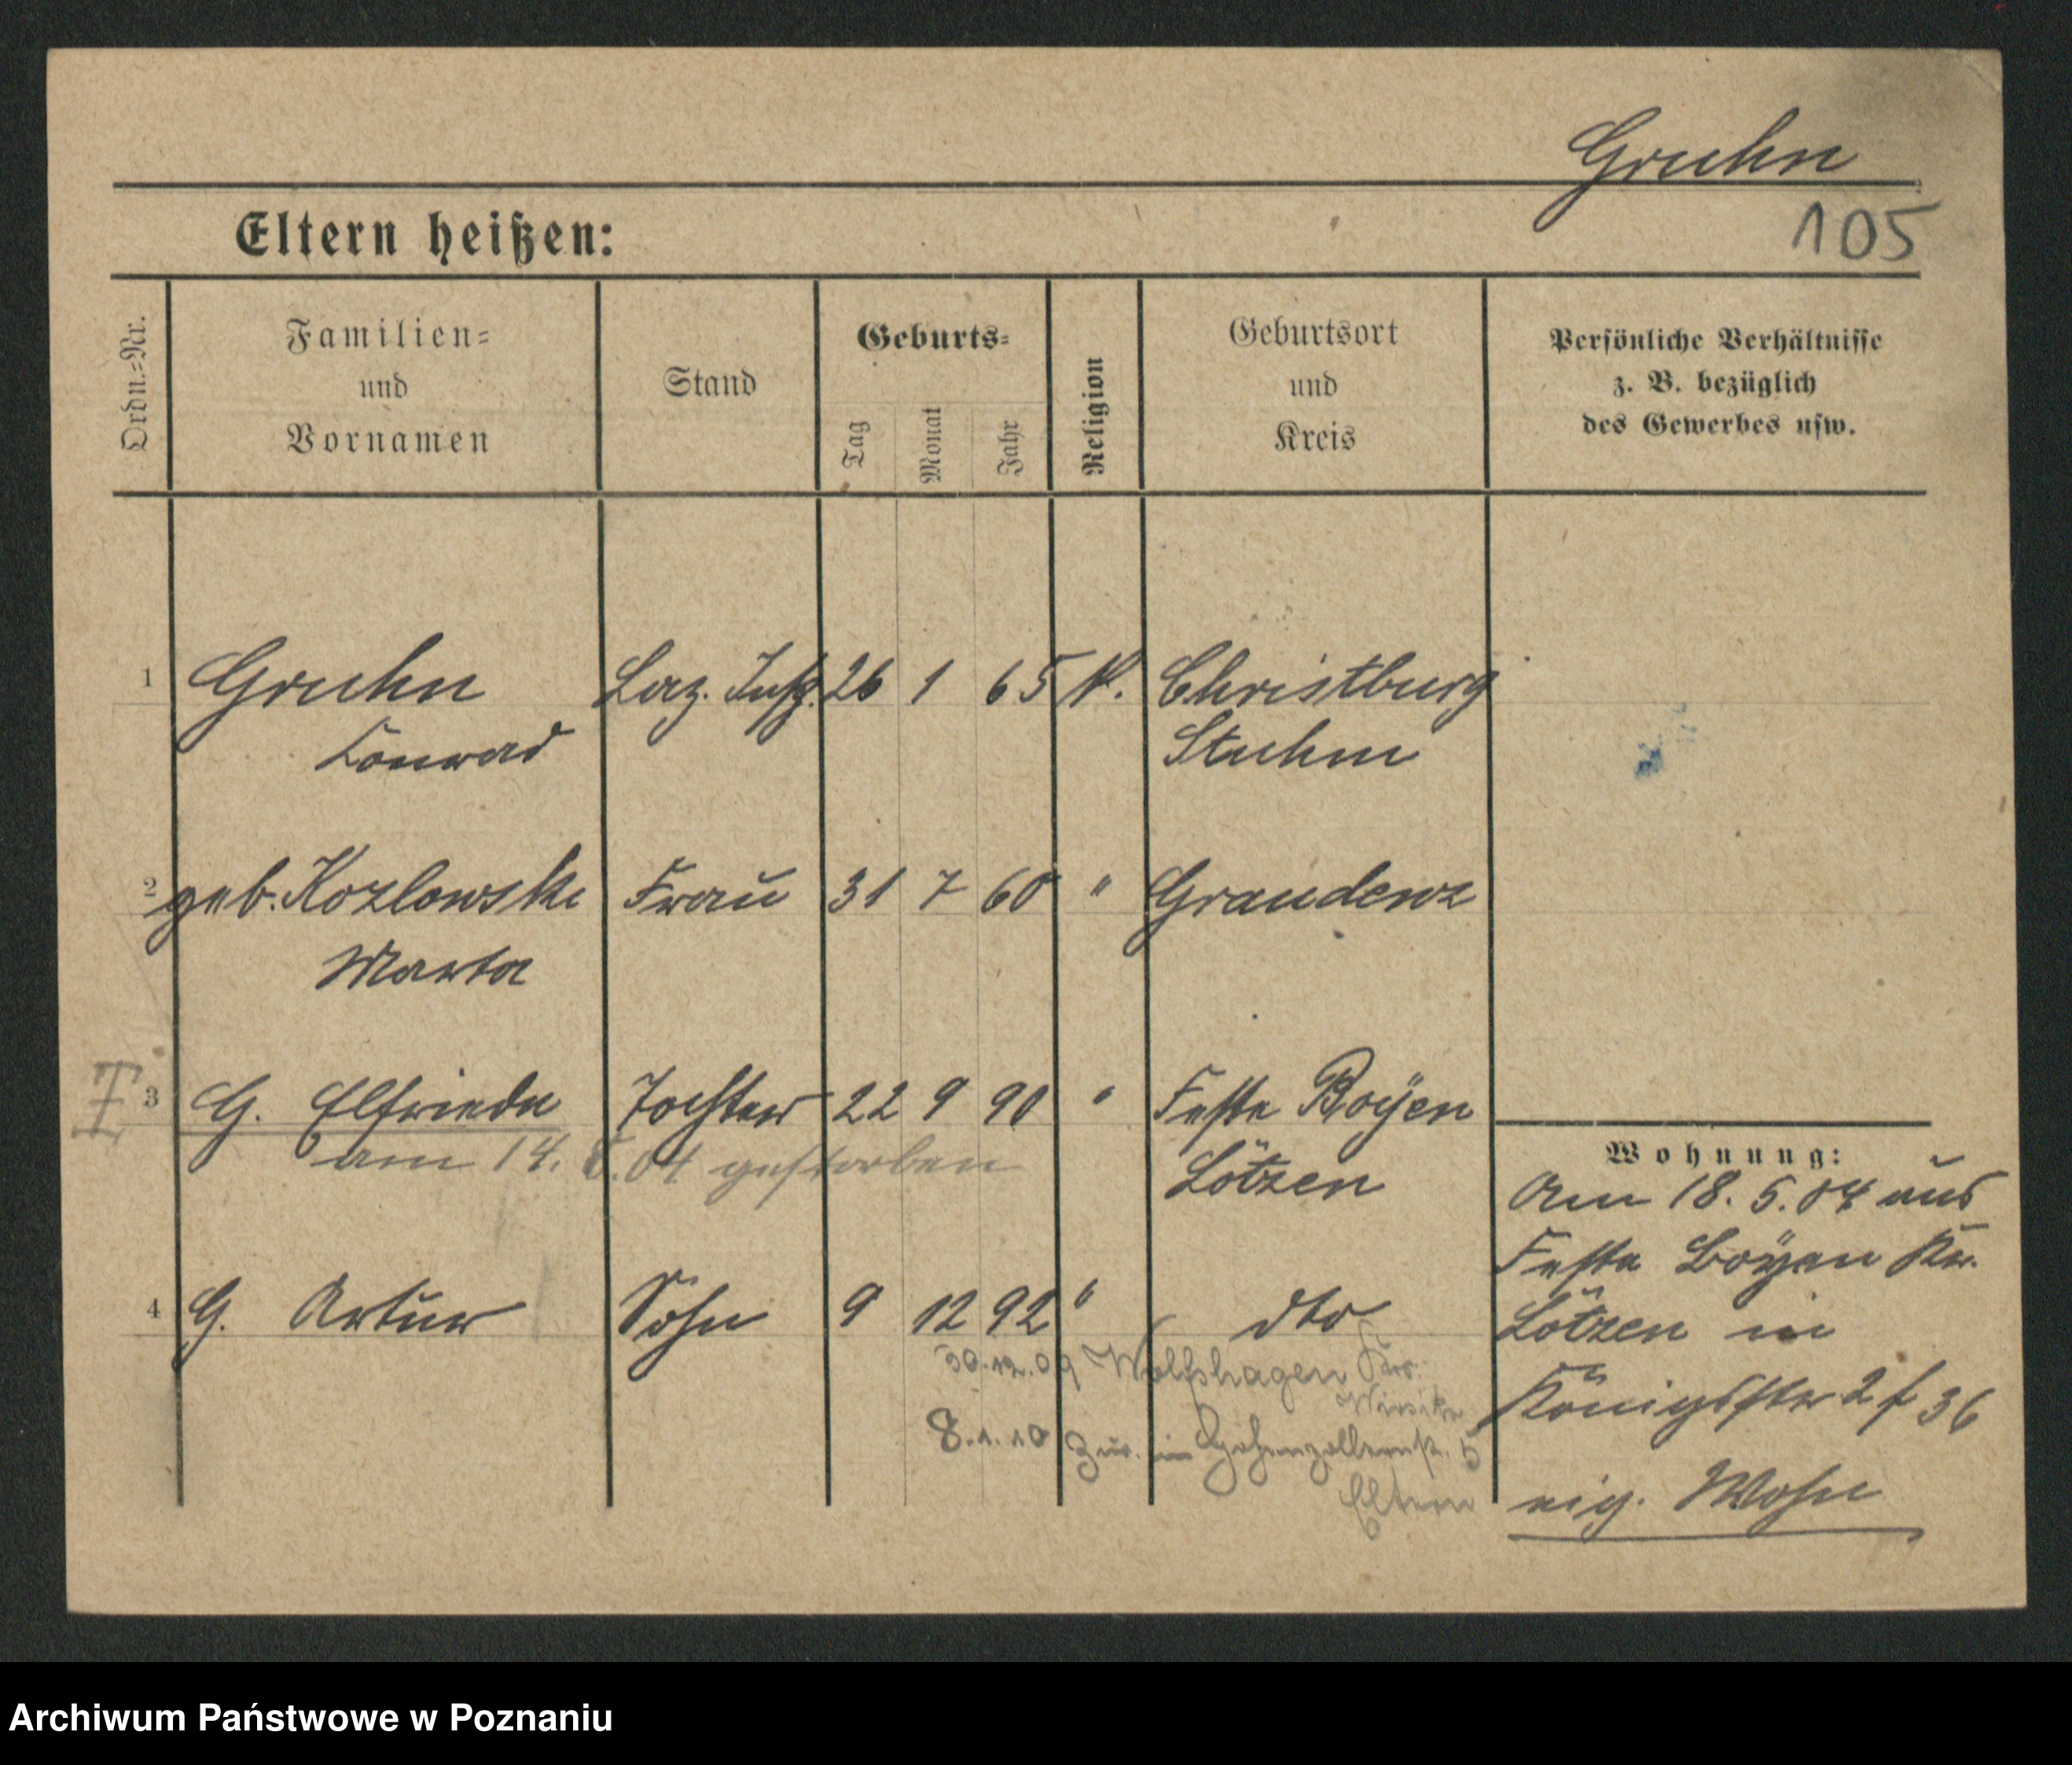 Gruhn
105
Eltern heißen:
Ordn.-Nr.
Familien-
und
Vornamen
Stand
Geburts-
Tag
Monat
Jahr
Religion
Geburtsort
und
Kreis
Persönliche Verhältnisse
z. B. bezüglich
des Gewerbes usw.
1 Gruhn Laz. Insp. 26 1 65 K. Christburg
Conrad Stuhm
2 geb. Kozlowski Frau 31 7 60 " Graudenz
Marta
3 G. Elfriede Tochter 22 9 90 " Feste Boyen
am 14. 5.04 gestorben Lötzen
4 G. Artur Sohn 9 12 92 " dto
30.12.09 Wolfshagen Krs.
8.1.10 Zur. in Hohenzollernstr. 5
Eltern
Wohnung:
Am 18. 5.04 aus
Feste Boyen Kr.
Lötzen in
Königsstr 2 f 36
eig. Wohn
Archiwum Państwowe w Poznaniu